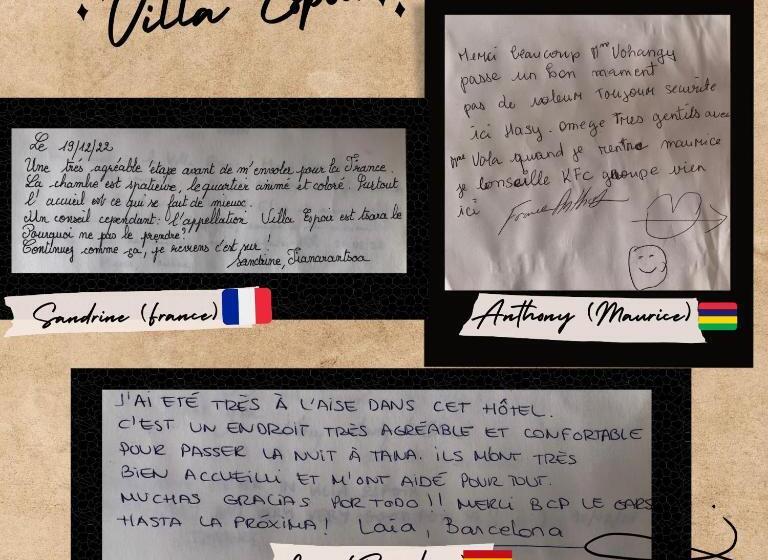 Villa Espoir
Le 19/12/22
Une très agréable étape avant de m'envoler pour la France.
La chambre est spatieuse, le quartier animé et coloré. Surtout
l'accueil est ce qui se fait de mieux.
Un conseil cependant: l'appellation Villa Espoir est tsara be
Pourquoi ne pas le prendre?
Continuez comme ça, je reviens c'est sur!
Sandrine, Fianarantsoa
Sandrine (france)
Merci beaucoup Mme Vohangy
passe un bon mament
pas de voleur Toujour securite
ici Hasy. omega Tres gentils avec
Mme Vola quand je rentre maurice
je Conseille KFC groupe vien
ici
Anthony (Maurice)
J'AI ETÉ TRÈS À L'AISE DANS CET HÔTEL.
C'EST UN ENDROIT TRÈS AGRÉABLE ET CONFORTABLE
POUR PASSER LA NUIT À TANA. ILS M'ONT TRÈS
BIEN ACCUEILLI ET M'ONT AIDÉ POUR TOUT.
MUCHAS GRACIAS POR TODO!! MERCI BCP LE GARS
HASTA LA PRÓXIMA! Laia, Barcelona